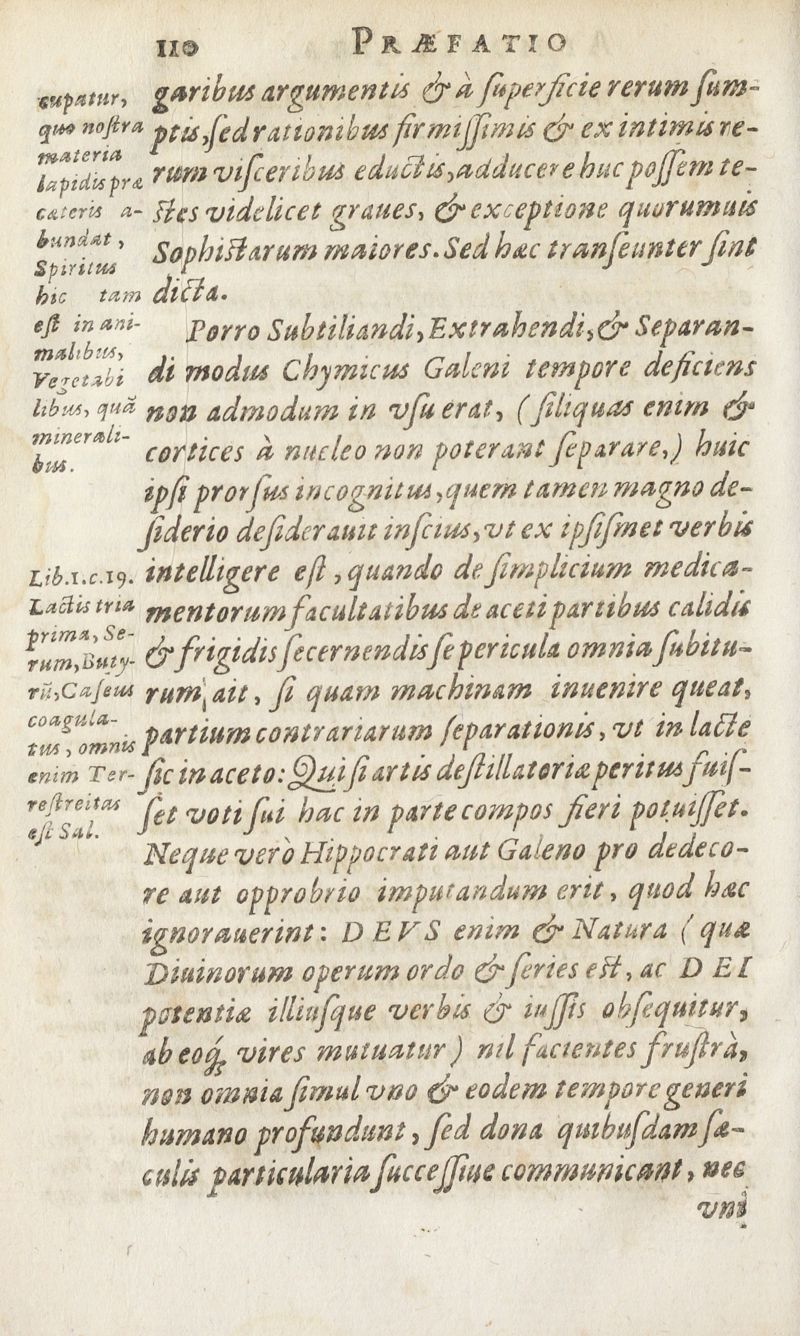 110 PRÆFATIO
garibus argumentis & à ſuperficie rerum ſum-
ptis, ſed rationibus firmiſſimis & ex intimis re-
rum viſceribus eductis, adducere huc poſſem te-
ſtes videlicet graues, & exceptione quorumuis
Sophiſtarum maiores. Sed hæc tranſeunter ſint
dicta.
Porro Subtiliandi, Extrahendi, & Separan-
di modus Chymicus Galeni tempore deficiens
non admodum in vſu erat, (ſiliquas enim &
cortices à nucleo non poterant ſeparare,) huic
ipſi prorſus incognitus, quem tamen magno de-
ſiderio deſiderauit inſcius, vt ex ipſiſmet verbis
intelligere eſt, quando de ſimplicium medica-
mentorum facultatibus de aceti partibus calidis
& frigidis ſecernendis ſe pericula omnia ſubitu-
rum ait, ſi quam machinam inuenire queat,
partium contrariarum ſeparationis, vt in lacte
ſic in aceto: Qui ſi artis deſtillatoriæ peritus fuiſ-
ſet voti ſui hac in parte compos fieri potuiſſet.
Neque verò Hippocrati aut Galeno pro dedeco-
re aut opprobrio imputandum erit, quod hæc
ignorauerint: DEVS enim & Natura (quæ
Diuinorum operum ordo & ſeries eſt, ac DEI
potentiæ illiuſque verbis & iuſſis obſequitur,
ab eoq́ue vires mutuatur) nil facientes fruſtrà,
non omnia ſimul vno & eodem tempore generi
humano profundunt, ſed dona quibuſdam ſæ-
culis particularia ſucceſſiue communicant, nec
vni
cupatur,
quo noſtra
materia
lapidis præ
cæteris a-
bundat,
Spiritus
hic tam
eſt in ani-
malibus,
Vegetabi
libus, quã
minerali-
bus.
Lib.1.c.19.
Lactis tria
prima, Se-
rum, Buty-
rũ, Caſeus
coagula-
tus, omnis
enim Ter-
reſtreitas
eſt Sal.